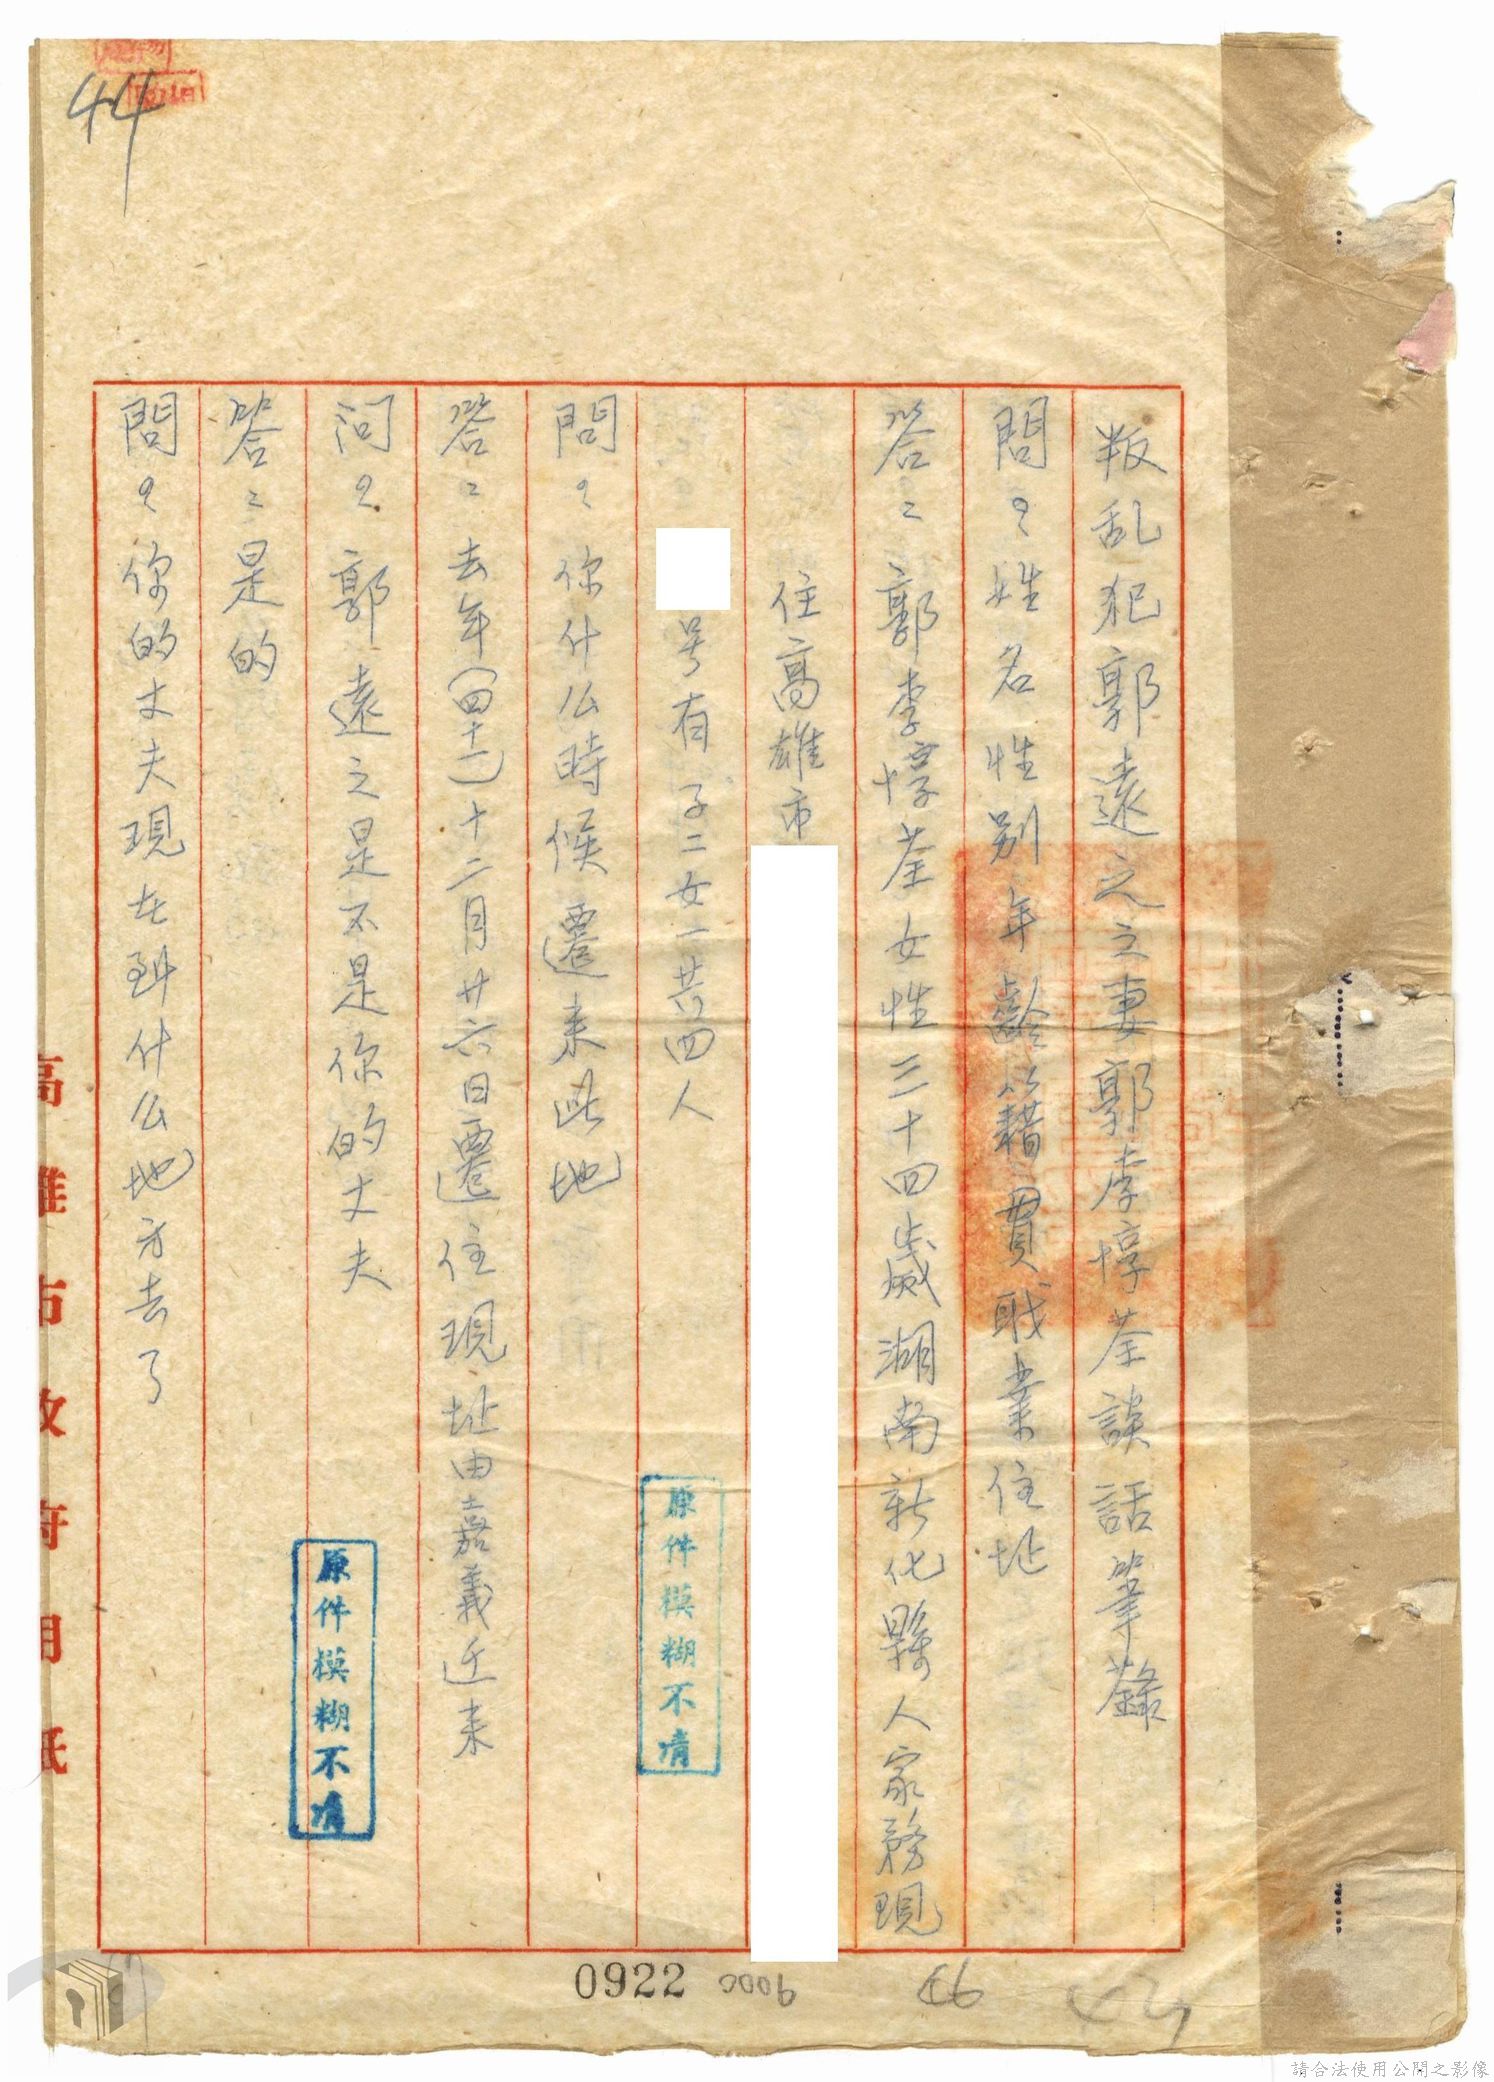 叛乱犯郭遠之之妻郭李惇荃談話筆錄
問：姓名性别年齡籍貫職業住址
答：郭李惇荃女性三十四歲湖南新化縣人家務現
住高雄市
号有子二女一共四人
問：你什么時候遷来此地
答：去年（四十一）十二月廿六日遷住現址由嘉義迁来
问：郭遠之是不是你的丈夫
答：是的
問：你的丈夫現在到什么地方去了
原件模糊不清
原件模糊不清
高雄市政府用紙
44
0922
0006
46
請合法使用公開之影像